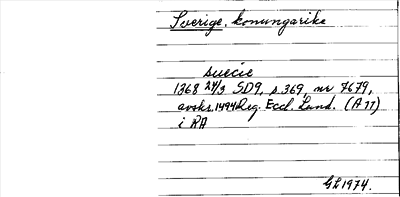 Sverige, konungarike
suecie
1368 24/3 SD9, s 369, nr 7679,
avskr. 1494 Reg. Eccl. Lund. (A 77)
i RA
GL 1974.